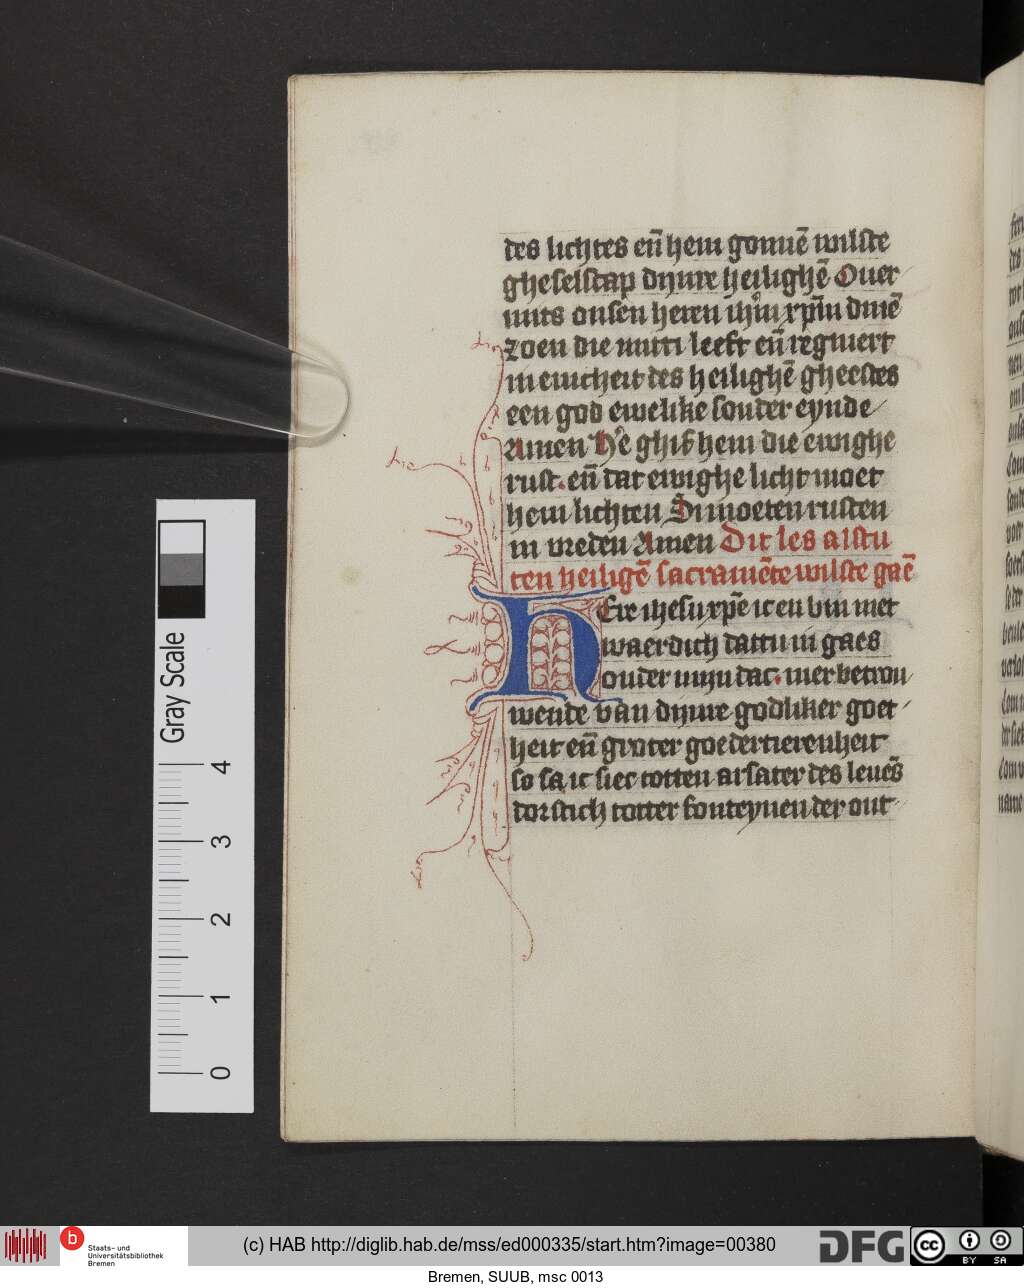 des lichtes en̄ hem gonnē wilste
gheselscap dynre heilighē Ouer
mits onsen heren ihm̄ xp̄m dinē
zoen die mitti leeft en̄ regniert
in enicheit des heilighē gheestes
een god ewelike sonder eynde
Amen he ghif hem die ewighe
rust. en̄ dat ewighe licht moet
hem lichten Si moeten rusten
in vreden Amen Dit les alstu
ten heiligē sacramēte wilste gaē
HEre ihesu xpē ic en bin niet
waerdich dattu in gaes
onder mijn dac. mer betrou
wende van dynre godliker goet
heit en̄ groter goedertierenheit
so ga ic siec totten arsater des leuēs
dorstich totter fonteynen der ont
Gray Scale
4
3
2
1
0
Staats- und
Universitätsbibliothek
Bremen
(c) HAB http://diglib.hab.de/mss/ed000335/start.htm?image=00380
DFG
cc BY SA
Bremen, SUUB, msc 0013